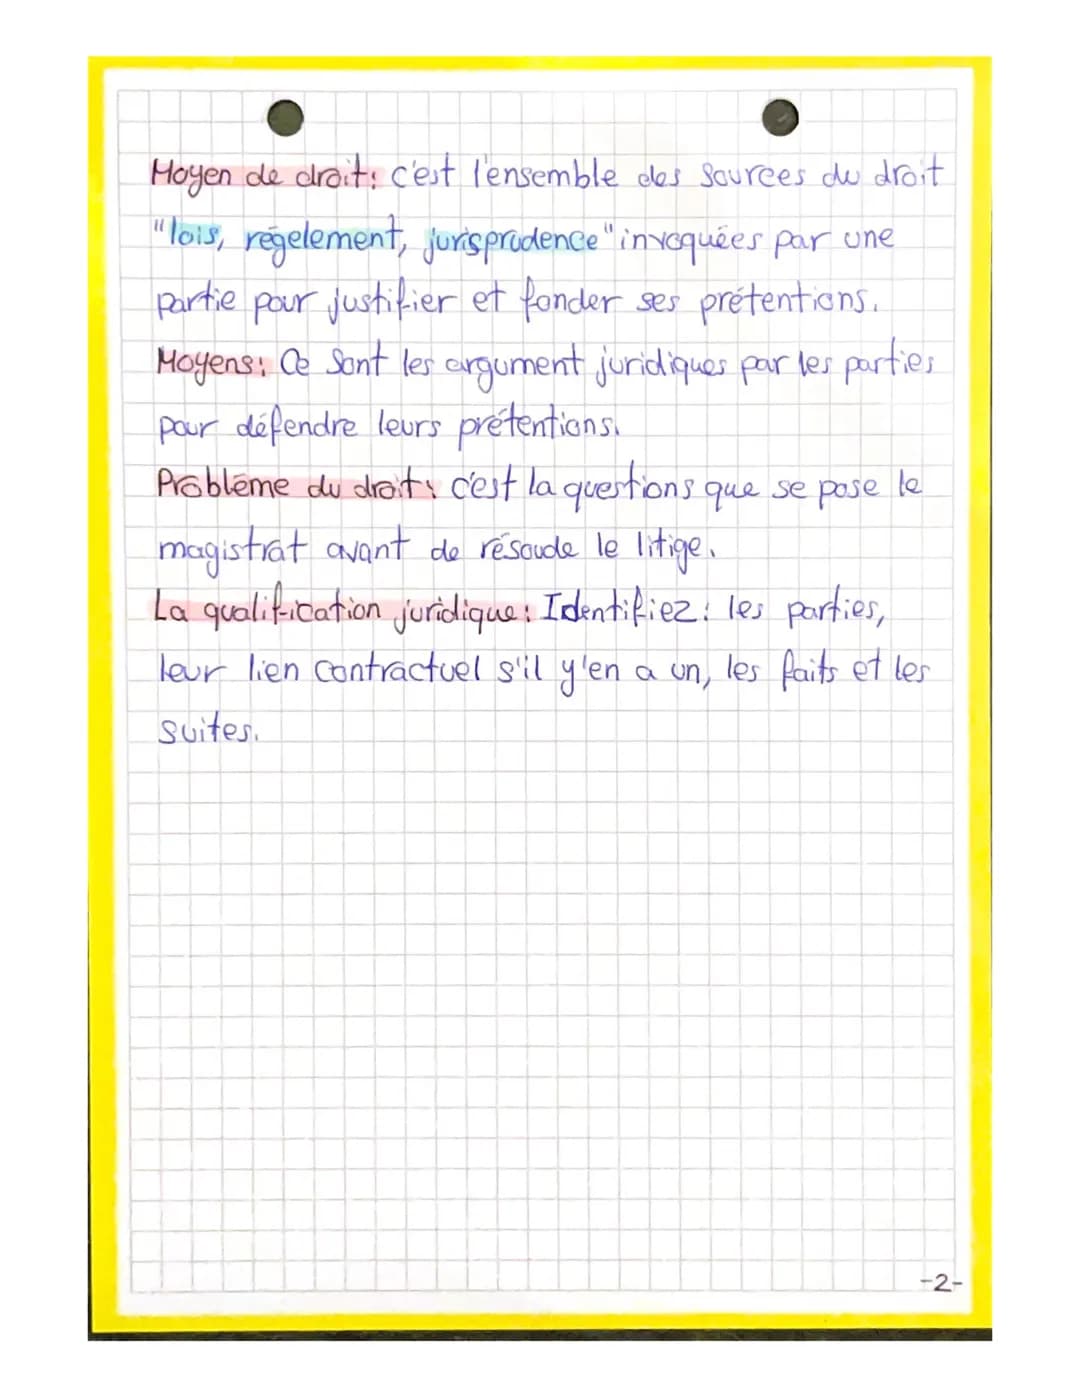 Moyen de droit: c'est l'ensemble des sources du droit
"lois, régelement, jurisprudence" invoquées par une
partie pour justifier et fonder ses prétentions.
Moyens: Ce Sont les argument juridiques par les parties
pour défendre leurs prétentions.
Problème du droit: c'est la questions que se pose le
magistrat avant de résoude le litige.
La qualification juridique: Identifiez: les parties,
leur lien contractuel s'il y'en a un, les faits et les
suites.
-2-